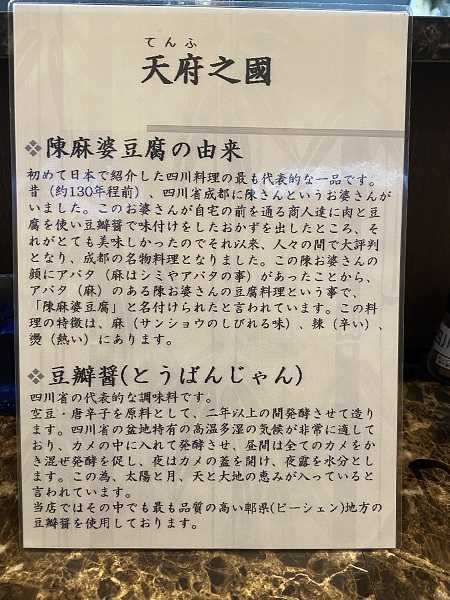 てんふ
天府之國
❖陳麻婆豆腐の由来
初めて日本で紹介した四川料理の最も代表的な一品です。
昔（約130年程前）、四川省成都に陳さんというお婆さんが
いました。このお婆さんが自宅の前を通る商人達に肉と豆
腐を使い豆瓣醤で味付けをしたおかずを出したところ、そ
れがとても美味しかったのでそれ以来、人々の間で大評判
となり、成都の名物料理となりました。この陳お婆さんの
顔にアバタ（麻はシミやアバタの事）があったことから、
アバタ（麻）のある陳お婆さんの豆腐料理という事で、
「陳麻婆豆腐」と名付けられたと言われています。この料
理の特徴は、麻（サンショウのしびれる味）、辣（辛い）、
燙（熱い）にあります。
❖豆瓣醤(とうばんじゃん)
四川省の代表的な調味料です。
空豆・唐辛子を原料として、二年以上の間発酵させて造り
ます。四川省の盆地特有の高温多湿の気候が非常に適して
おり、カメの中に入れて発酵させ、昼間は全てのカメをか
き混ぜ発酵を促し、夜はカメの蓋を開け、夜露を水分とし
ます。この為、太陽と月、天と大地の恵みが入っていると
言われています。
当店ではその中でも最も品質の高い郫県(ピーシェン)地方の
豆瓣醤を使用しております。